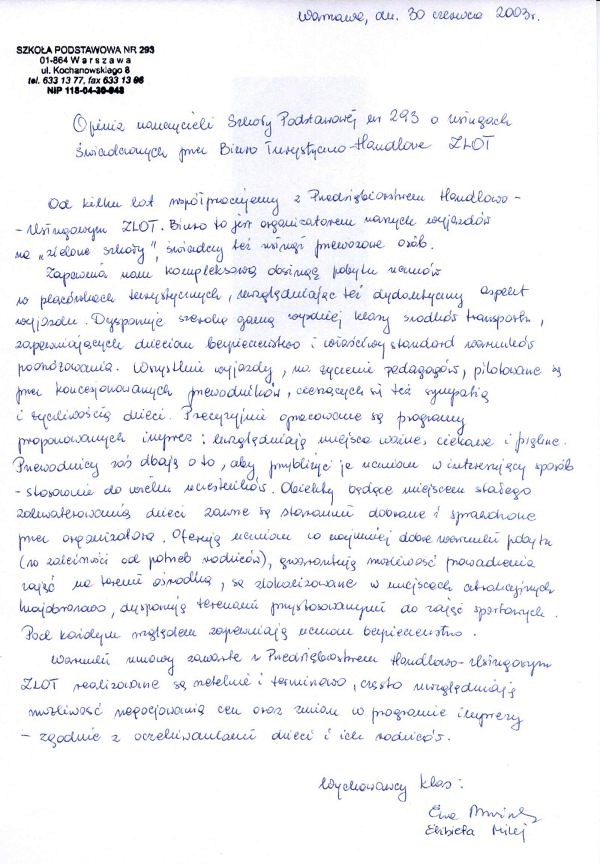 Warszawa, dn. 30 czerwca 2003r.
SZKOŁA PODSTAWOWA NR 293
01-864 Warszawa
ul. Kochanowskiego 8
tel. 633 13 77, fax 633 13 96
NIP 118-04-39-948
Opinia nauczycieli Szkoły Podstawowej nr 293 o usługach
świadczonych przez Biuro Turystyczno-Handlowe ZLOT
Od kilku lat współpracujemy z Przedsiębiorstwem Handlowo-
-Usługowym ZLOT. Biuro to jest organizatorem naszych wyjazdów
na „zielone szkoły", świadczy też usługi przewozowe osób.
Zapewnia nam kompleksową obsługę pobytu uczniów
w placówkach turystycznych, uwzględniając też dydaktyczny aspekt
wyjazdu. Dysponuje szeroką gamą wysokiej klasy środków transportu,
zapewniających dzieciom bezpieczeństwo i właściwy standard warunków
podróżowania. Wszystkie wyjazdy, na życzenie pedagogów, pilotowane są
przez koncesjonowanych przewodników, cieszących się też sympatią
i życzliwością dzieci. Precyzyjnie opracowane są programy
proponowanych imprez: uwzględniają miejsca ważne, ciekawe i piękne.
Przewodnicy zaś dbają o to, aby przybliżyć je uczniom w interesujący sposób
- stosownie do wieku uczestników. Obiekty będące miejscem stałego
zakwaterowania dzieci zawsze są starannie dobrane i sprawdzone
przez organizatora. Oferują uczniom co najmniej dobre warunki pobytu
(w zależności od potrzeb rodziców), gwarantują możliwość prowadzenia
zajęć na terenie ośrodka, są zlokalizowane w miejscach atrakcyjnych
krajobrazowo, dysponują terenami przystosowanymi do zajęć sportowych.
Pod każdym względem zapewniają uczniom bezpieczeństwo.
Warunki umowy zawarte z Przedsiębiorstwem Handlowo-Usługowym
ZLOT realizowane są rzetelnie i terminowo, często uwzględniają
możliwość negocjowania cen oraz zmian w programie imprezy
- zgodnie z oczekiwaniami dzieci i ich rodziców.
Wychowawcy klas:
Ewa
Elżbieta Milej